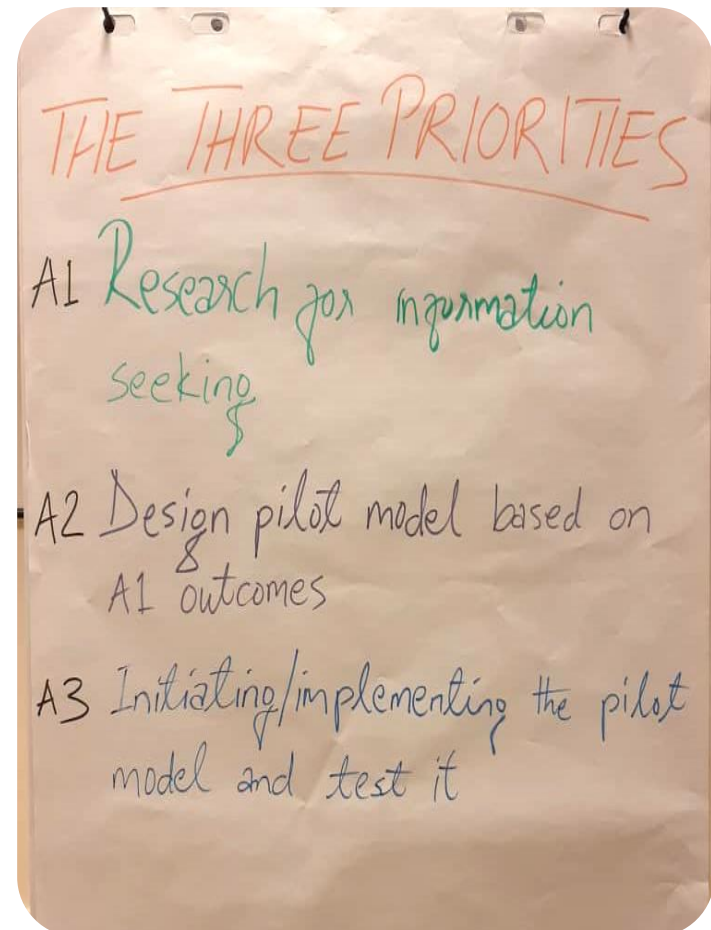 THE THREE PRIORITIES
A1 Research for information
seeking
A2 Design pilot model based on
A1 outcomes
A3 Initiating/implementing the pilot
model and test it